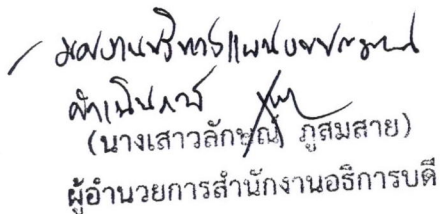 มอบงานบริหารแผนงบประมาณ
ดำเนินการ
(นางเสาวลักษณ์ ภูสมสาย)
ผู้อำนวยการสำนักงานอธิการบดี